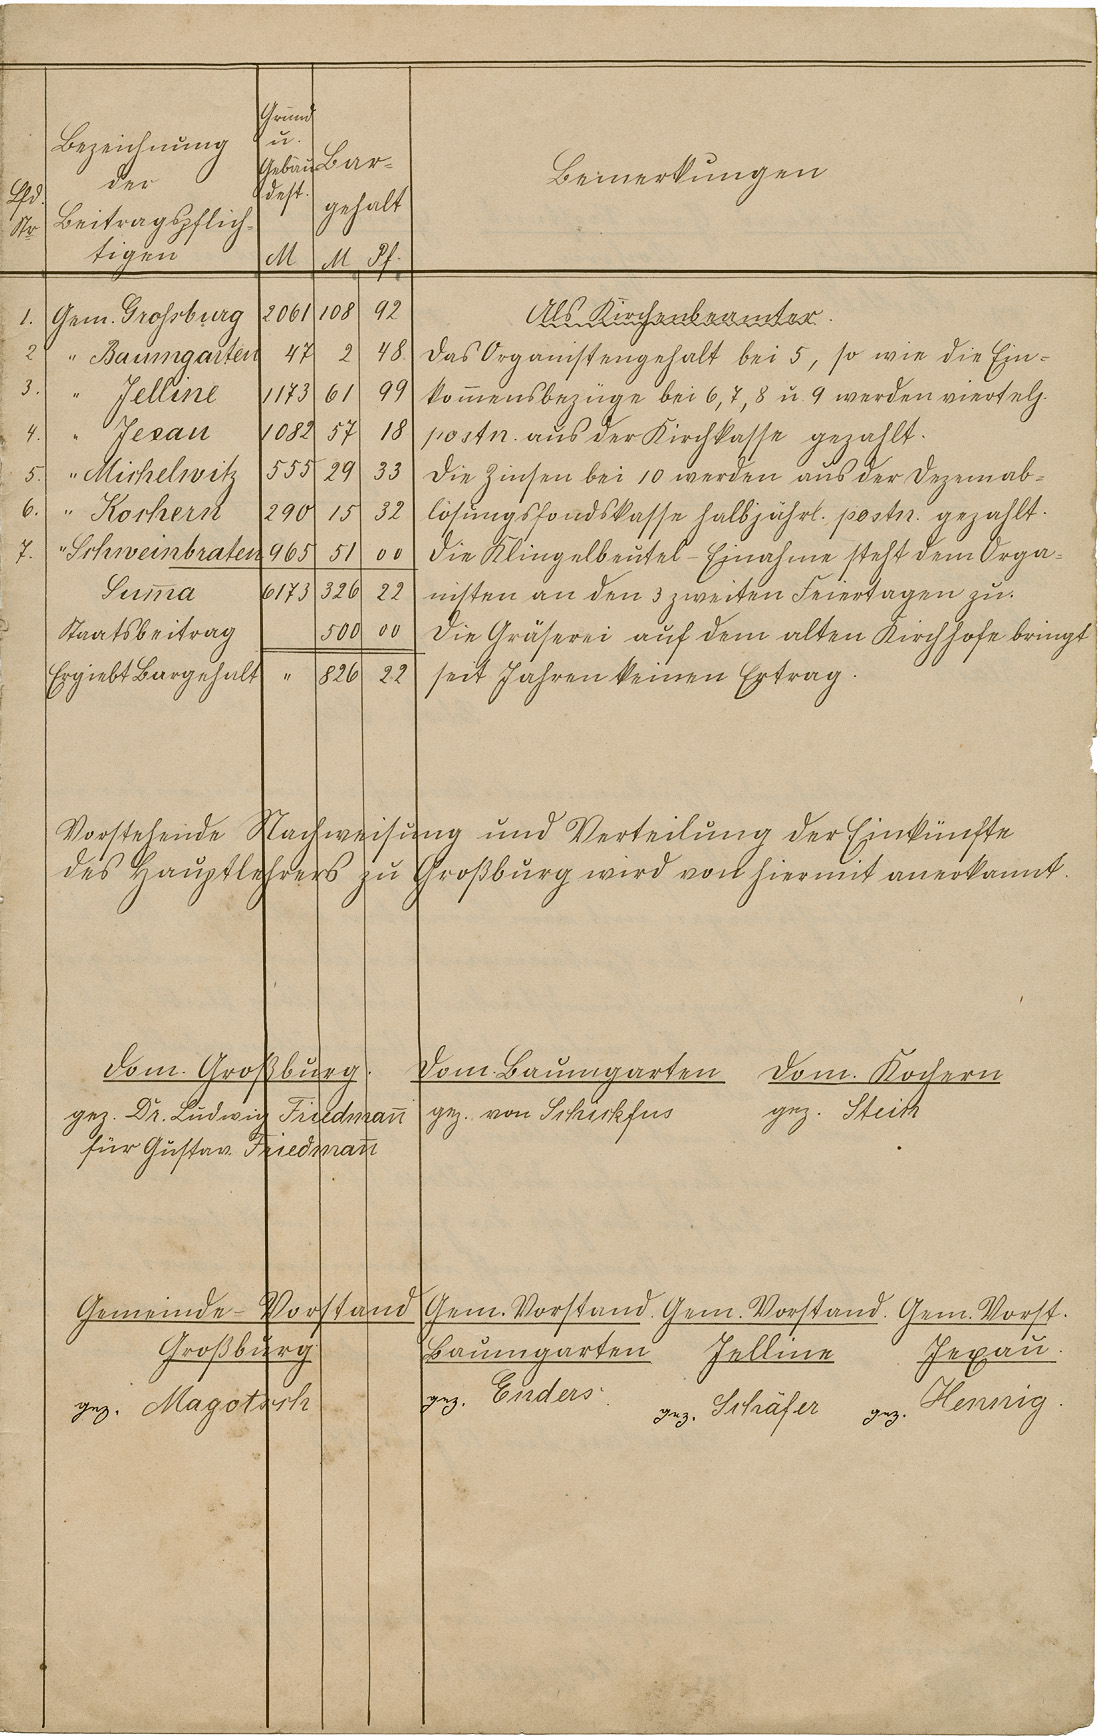 Lfd. Nr
Bezeichnung der Beitragspflich-tigen
Grund u. Gebäu dest. M
Bar-gehalt M Pf.
Bemerkungen
1. Gem. Grossburg 2061 108 92
2 " Baumgarten 47 2 48
3. " Jelline 1173 61 99
4. " Jexau 1082 57 18
5. " Michelwitz 555 29 33
6. " Kochern 290 15 32
7. " Schweinbraten 965 51 00
Sum̄a 6173 326 22
Staatsbeitrag 500 00
Ergiebt Bargehalt " 826 22
Als Kirchenbeamter.
Das Organistengehalt bei 5, so wie die Ein-
kom̄ensbezüge bei 6, 7, 8 u 9 werden viertelj.
postn. aus der Kirchkasse gezahlt.
Die Zinsen bei 10 werden aus der Dezemab-
lösungsfondskasse halbjährl. postn. gezahlt.
Die Klingelbeutel-Einahme steht dem Orga-
nisten an den 3 zweiten Feiertagen zu.
Die Gräserei auf dem alten Kirchhofe bringt
seit Jahren keinen Ertrag.
Vorstehende Nachweisung und Verteilung der Einkünfte
des Hauptlehrers zu Großburg wird von hiermit anerkannt.
Dom. Großburg.
gez. Dr. Ludwig Friedman̄
für Gustav Friedman̄
Dom. Baumgarten
gez. von Schickfus
Dom. Kochern
gez.
Gemeinde-Vorstand
Großburg
gez. Magotsch
Gem. Vorstand.
Baumgarten
gez. Enders.
Gem. Vorstand.
Jelline
gez. Schäfer
Gem. Vorst.
Jexau.
gez. Hennig.